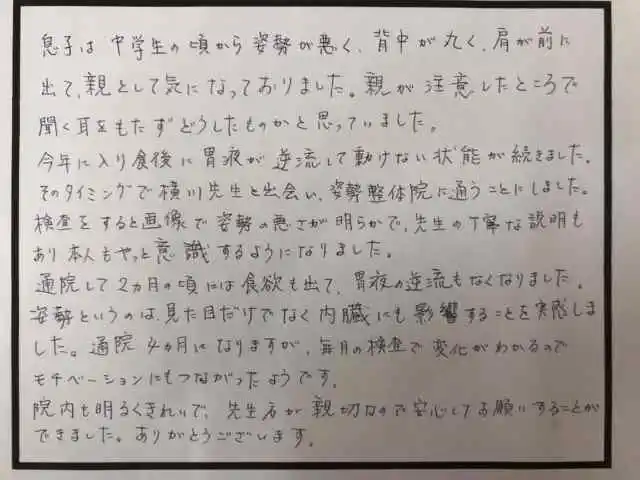 息子は中学生の頃から姿勢が悪く、背中が丸く、肩が前に
出て、親として気になっておりました。親が注意したところで
聞く耳をもたずどうしたものかと思っていました。
今年に入り食後に胃液が逆流して動けない状態が続きました。
そのタイミングで横川先生と出会い、姿勢整体院に通うことにしました。
検査をすると画像で姿勢の悪さが明らかで、先生の丁寧な説明も
あり本人もやっと意識するようになりました。
通院して2カ月の頃には食欲も出て、胃液の逆流もなくなりました。
姿勢というのは、見た目だけでなく内臓にも影響することを実感しま
した。通院4カ月になりますが、毎月の検査で変化がわかるので
モチベーションにもつながったようです。
院内も明るくきれいで、先生方が親切なので安心してお願いすることが
できました。ありがとうございます。